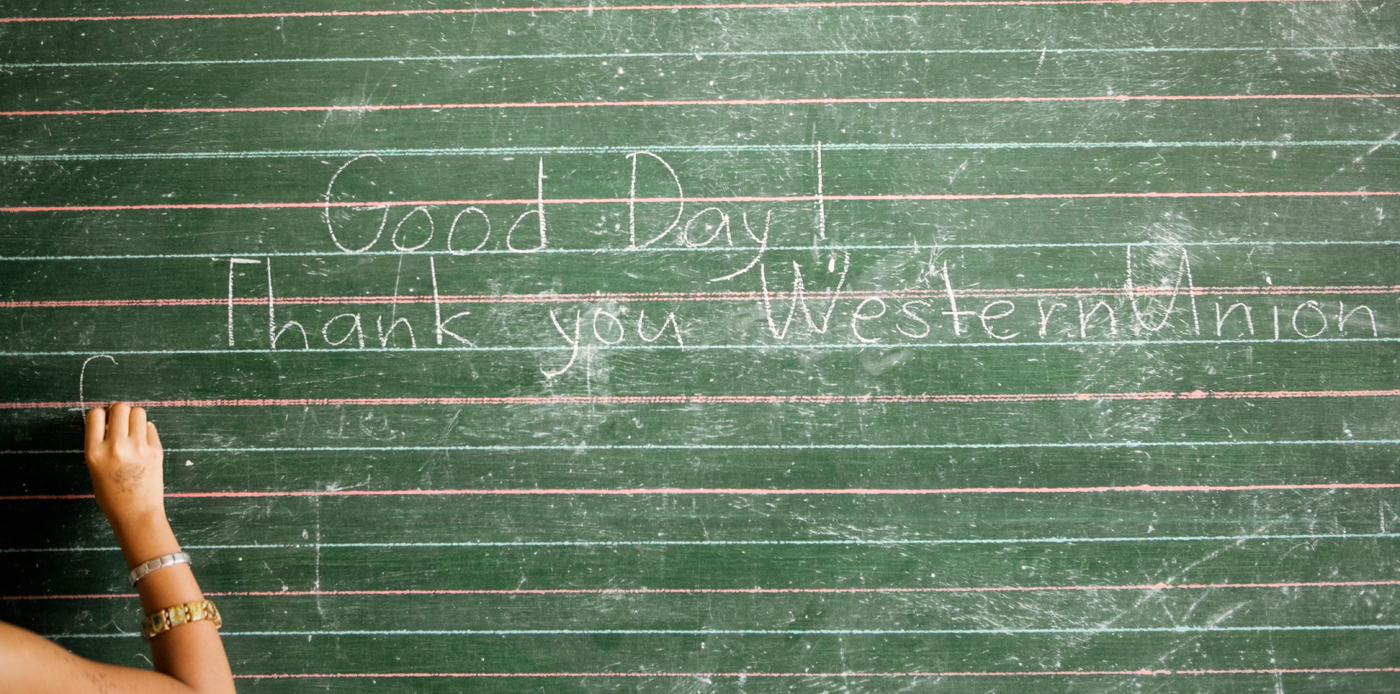 Good Day!
Thank you Western Union